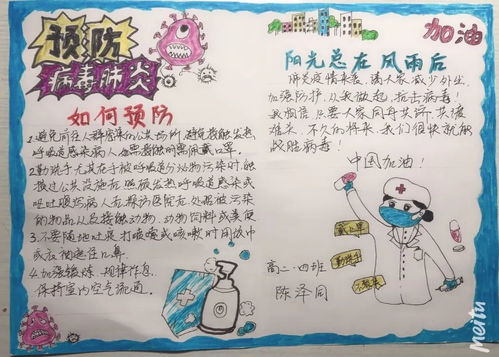 预防
病毒肺炎
如何预防
1.避免前往人群密集的公共场所,避免接触发热
呼吸道感染病人,如需接触时需佩戴口罩。
2.勤洗手尤其在手被呼吸道分动物污染时,触
摸过公共设施后,照顾发热呼吸道感染或
呕吐腹泻病人后,探访医院后,处理被污染
的物品以及接触动物、动物饲料或粪便
3.不要随地吐痰,打喷嚏或咳嗽时用纸巾
或衣袖遮住口鼻.
4.加强锻炼.规律作息.
保持室内空气流通.
加油
阳光总在风雨后
肺炎疫情来袭,请大家减少外出,
加强防护,从我做起,抗击病毒!
我相信只要大家同舟共济,共渡
难关,不久的将来,我们很快就能
战胜病毒!
中国加油!
戴口罩
勤洗手
高二·四班
陈泽同
meitu